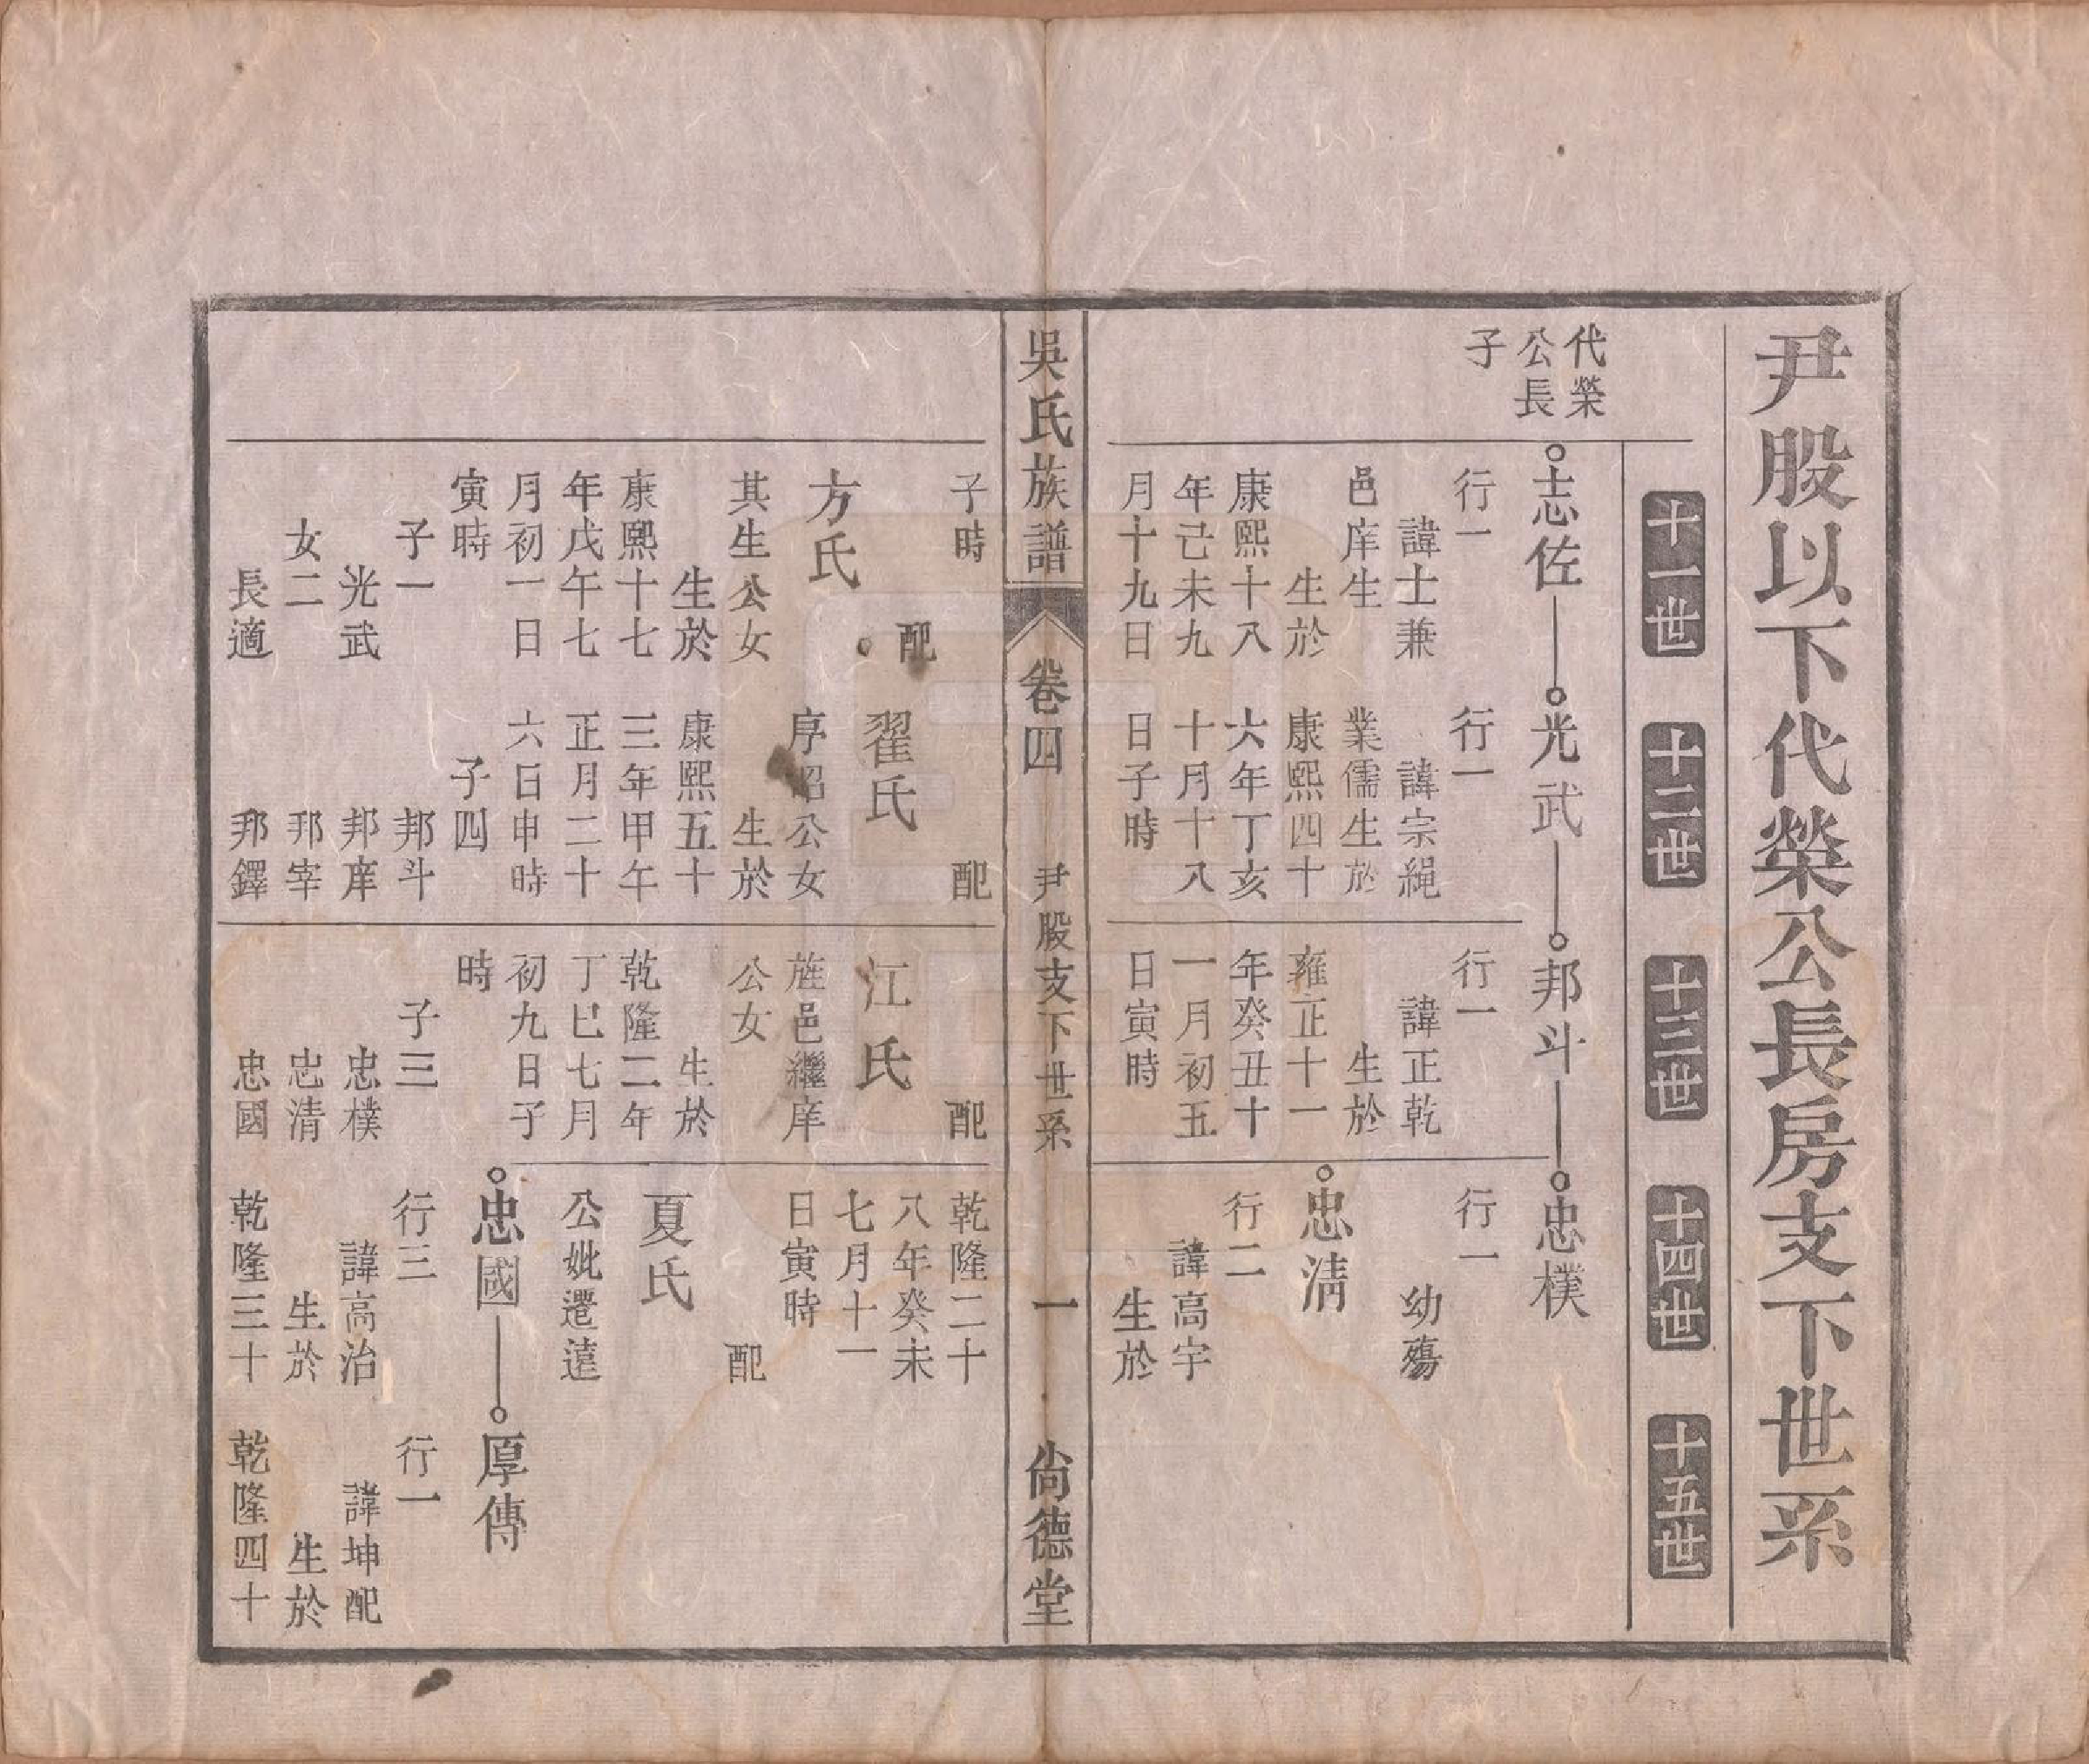 尹股以下代榮公長房支下世系
十一世
十二世
十三世
十四世
十五世
代榮
公長
子
志佐
行一
諱士兼
邑庠生
生於
康熙十八
年己未九
月十九日
子時
配
方氏
其生公女
生於
康熙十七
年戊午七
月初一日
寅時
子一
光武
女二
長適
光武
行一
諱宗繩
業儒生於
康熙四十
六年丁亥
十月十八
日子時
配
翟氏
序昭公女
生於
康熙五十
三年甲午
正月二十
六日申時
子四
邦斗
邦庠
邦宰
邦鐸
邦斗
行一
諱正乾
生於
雍正十一
年癸丑十
一月初五
日寅時
配
江氏
旌邑繼庠
公女
生於
乾隆二年
丁巳七月
初九日子
時
子三
忠樸
忠清
忠國
忠樸
行一
幼殤
忠清
行二
諱高宇
生於
乾隆二十
八年癸未
七月十一
日寅時
配
夏氏
公妣遷遠
忠國
行三
諱高治
生於
乾隆三十
厚傳
行一
諱坤配
生於
乾隆四十
吳氏族譜
卷四
尹股支下世系
一
尙德堂